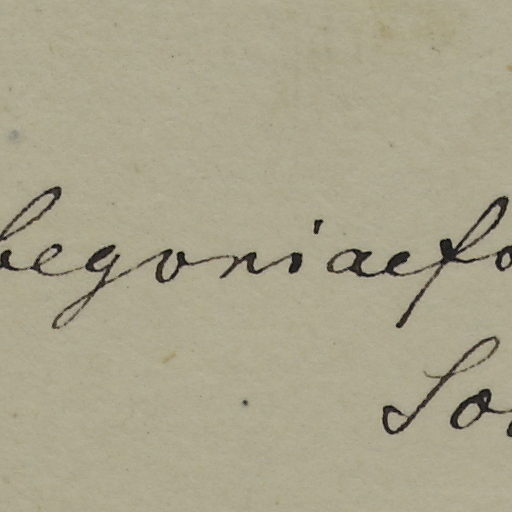 begoniaefo
So